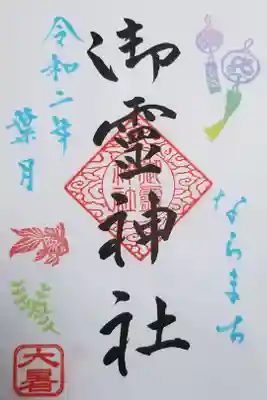 令和二年
葉月
御霊神社
ならまち
大暑